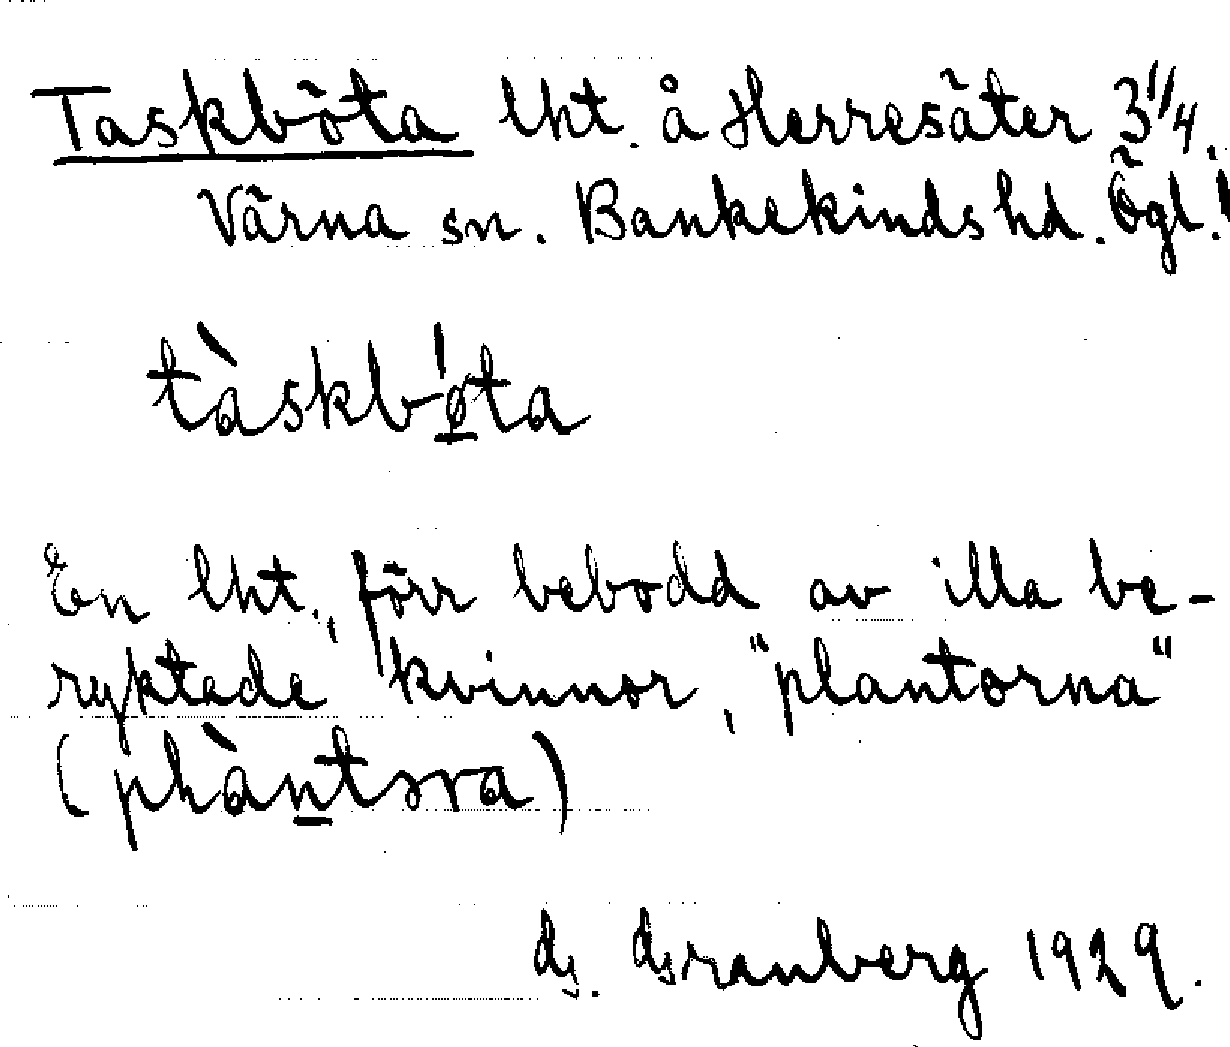 Taskböta lht. å Herresäter 3 1/4.
Värna sn. Bankekinds hd. Ögl.
tàskbø̲ta
En lht., förr bebodd av illa be-
ryktade kvinnor, "plantorna"
1929.